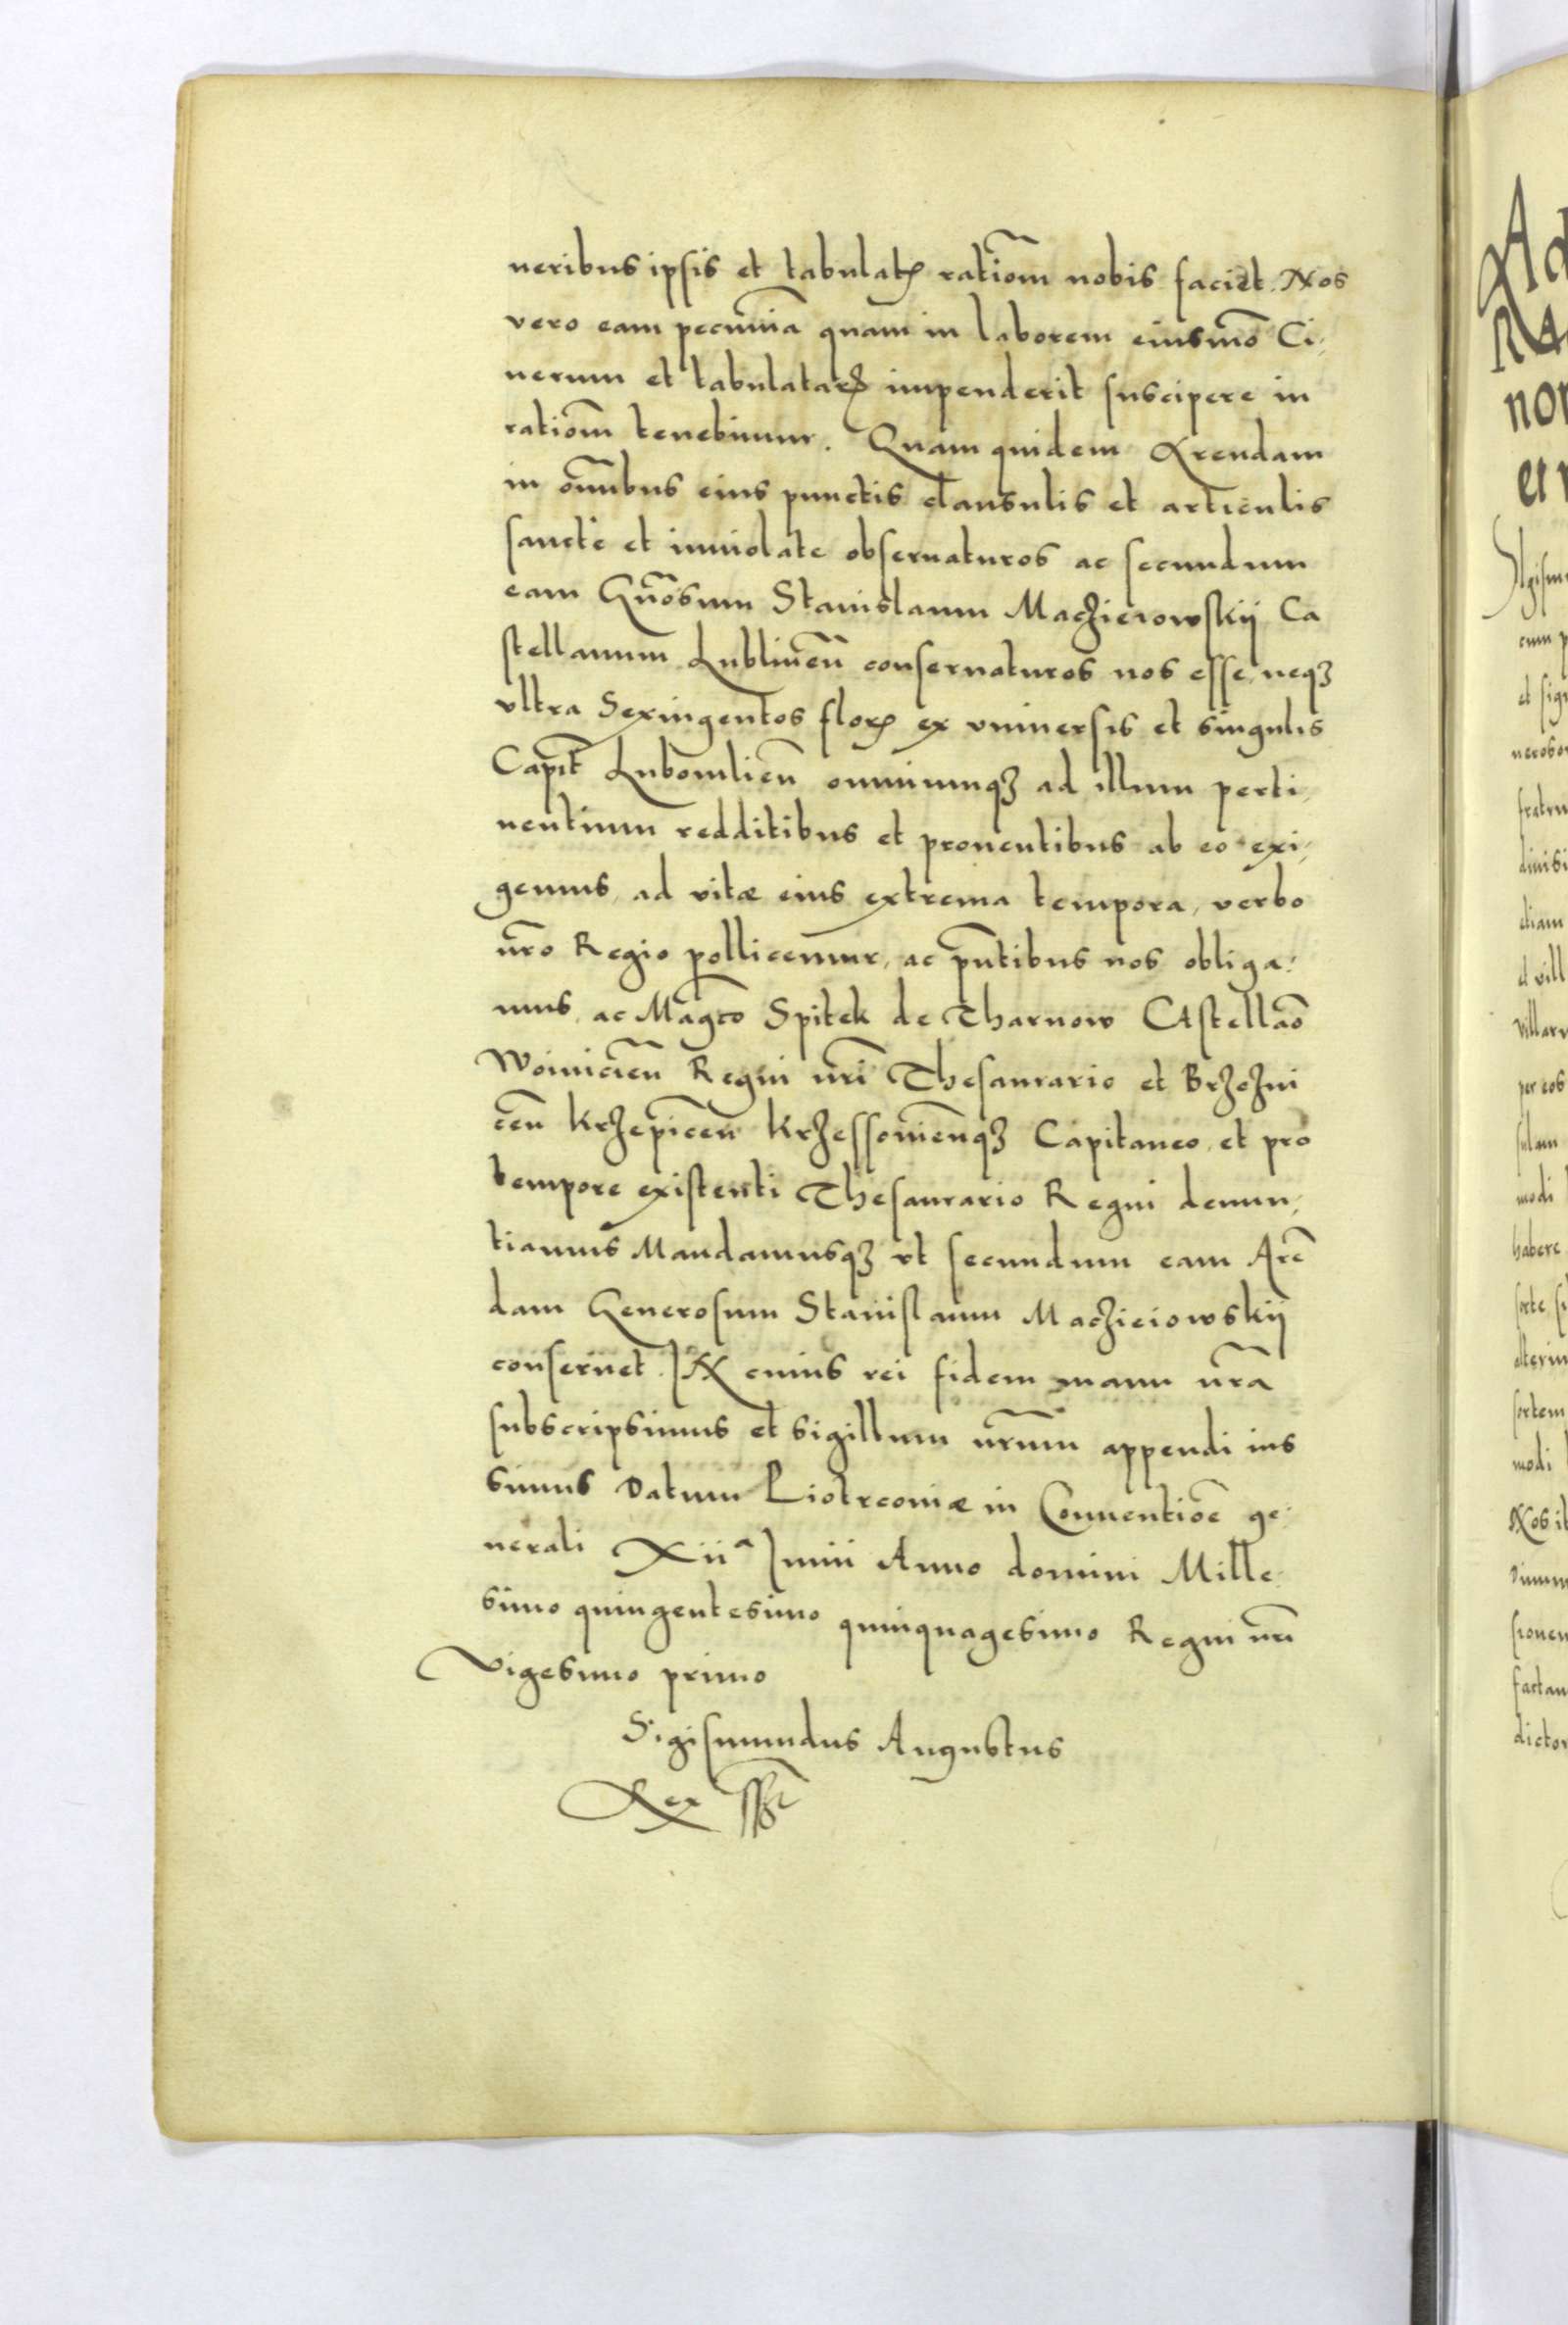 neribus ipsis et tabulatꝭ ratiōm nobis faciet. Nos
vero eam pecuniā quam in laborem eiusmō Ci,
nerum et tabulataꝝ impenderit suscipere in
ratiōm tenebimur. Quam quidem Arendam
in oīnibus eius punctis clausulis et articulis
sancte et inuiolate obseruaturos ac secundum
eam Gnōsum Stanislaum Maczieiowskij Ca
stellanum Lublineñ conseruaturos nos esse, neqꝫ
vltra Sexingentos florꝭ ex vniuersis et singulis
Capit̄ Lubomlieñ omniumqꝫ ad illum perti,
nentium redditibus et prouentibus ab eo exi,
gemus, ad vitæ eius extrema tempora, verbo
nr̄o Regio pollicemur, ac pn̄tibus nos obliga,
mus, ac Magco Spitek de Tharnow CAstellaō
Woinicieñ Regni nr̄i Thesaurario et Brzezni
ceñ Krzepiceñ Krzessoweñqꝫ Capitaneo, et pro
tempore existenti Thesaurario Regni denun,
tiamus Mandamusqꝫ vt secundum eam Arē
dam Generosum Stanislaum Maczieiowskij
conseruet. IN cuius rei fidem manu nr̄a
subscripsimus et sigillum nr̄um appendi ius
simus Datum Piotrcouiæ in Conuentiōe ge,
nerali Xiiᵃ Junii Anno domini Mille,
simo quingentesimo quinquagesimo Regni nr̄i
Vigesimo primo
Sigismundus Augustus
Rex sst
Ad
RA
non
et
cum p
et sig
neroso
fratru
diuisi
etiam
et vill
villaru
per eos
sulam
modi
habere
sorte
alteriu
sortem
modi
Nos it
sionem
factam
dictor